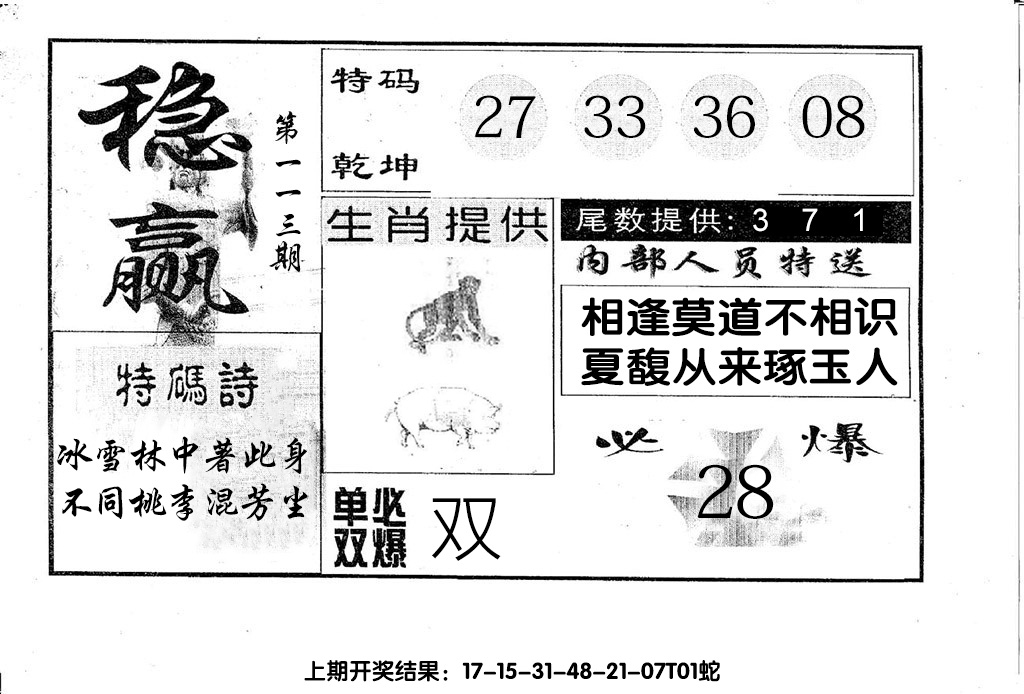 稳赢
第一一三期
特码诗
冰雪林中著此身
不同桃李混芳尘
特码
乾坤
27 33 36 08
生肖提供
单双必爆
双
尾数提供: 3 7 1
内部人员特送
相逢莫道不相识
夏馥从来琢玉人
必爆
28
上期开奖结果：17-15-31-48-21-07T01蛇